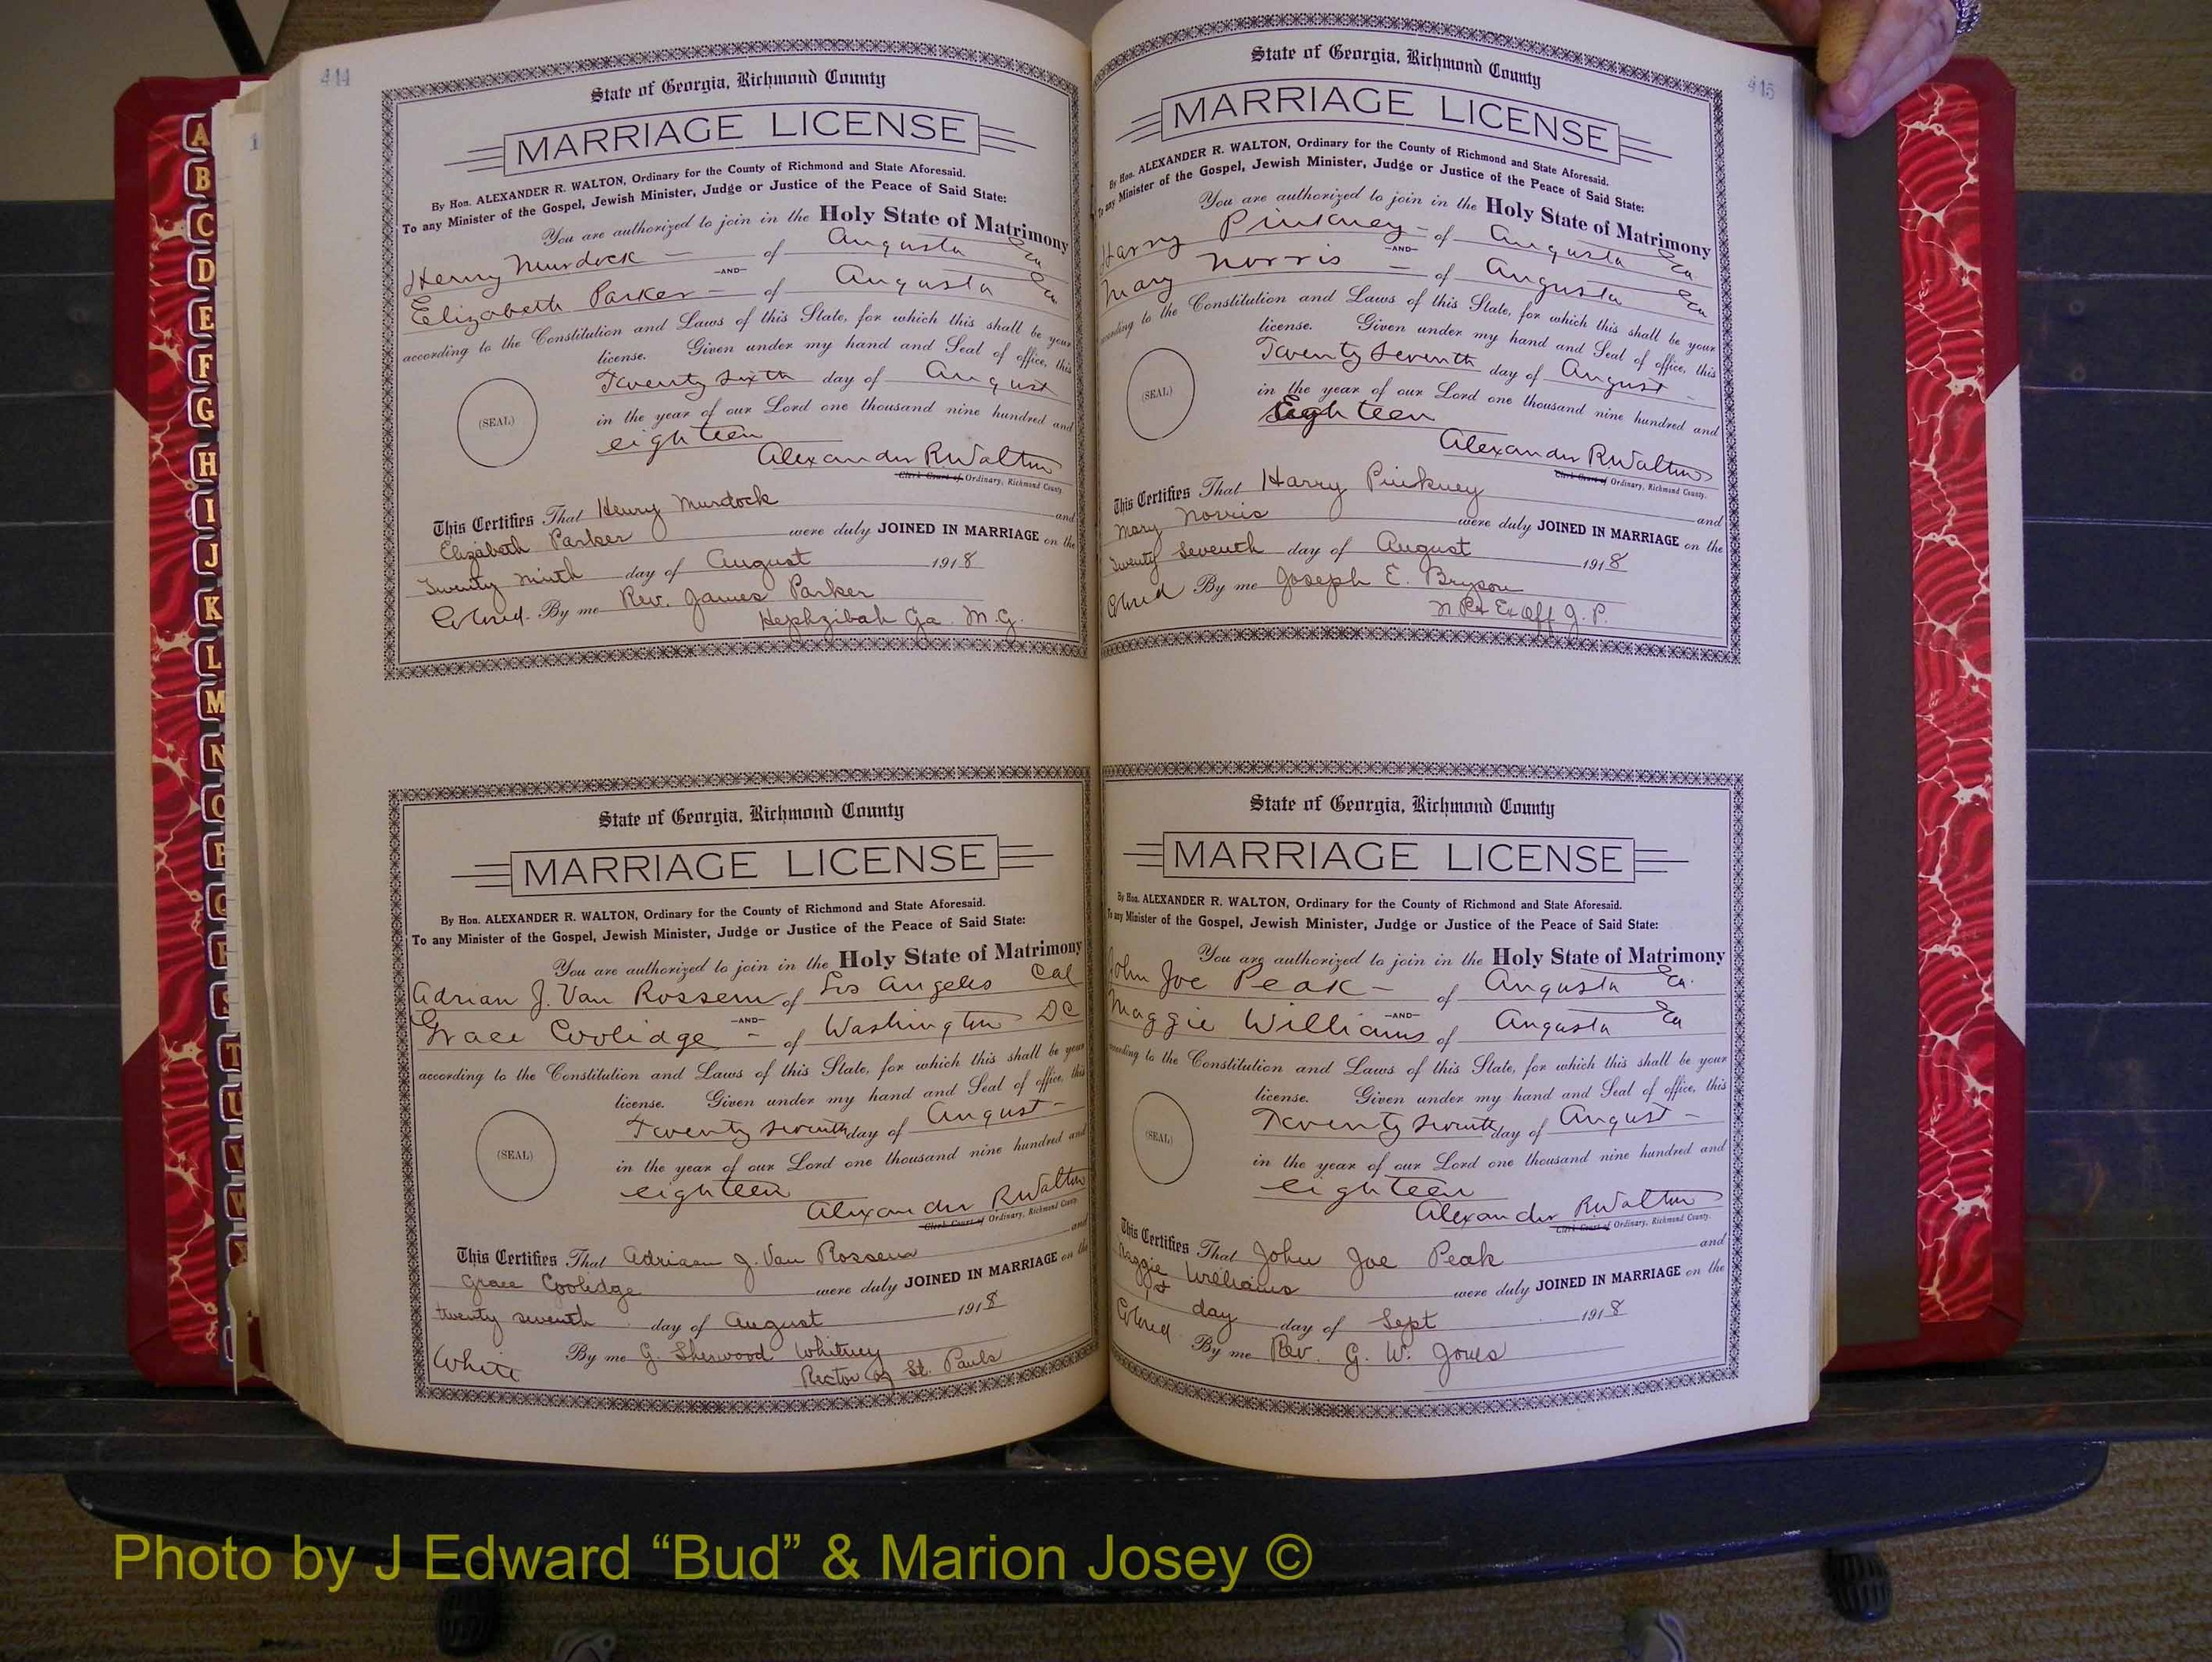 444
State of Georgia, Richmond County
MARRIAGE LICENSE
By Hon. ALEXANDER R. WALTON, Ordinary for the County of Richmond and State Aforesaid.
To any Minister of the Gospel, Jewish Minister, Judge or Justice of the Peace of Said State:
You are authorized to join in the Holy State of Matrimony
Henry Murdock - of Augusta Ga
-AND-
Elizabeth Parker - of Augusta Ga
according to the Constitution and Laws of this State, for which this shall be your
license. Given under my hand and Seal of office, this
Twenty Sixth day of August
(SEAL)
in the year of our Lord one thousand nine hundred and
eighteen
Alexander R Walton
Clerk Court of Ordinary, Richmond County
This Certifies That Henry Murdock and
Elizabeth Parker were duly JOINED IN MARRIAGE on the
Twenty ninth day of August 1918
Colored. By me Rev. James Parker
Hephzibah Ga. M.G.
State of Georgia, Richmond County
MARRIAGE LICENSE
By Hon. ALEXANDER R. WALTON, Ordinary for the County of Richmond and State Aforesaid.
To any Minister of the Gospel, Jewish Minister, Judge or Justice of the Peace of Said State:
You are authorized to join in the Holy State of Matrimony
Adrian J. Van Rossem of Los Angeles Cal
-AND-
Grace Coolidge - of Washington DC
according to the Constitution and Laws of this State, for which this shall be your
license. Given under my hand and Seal of office, this
Twenty seventh day of August -
(SEAL)
in the year of our Lord one thousand nine hundred and
eighteen
Alexander R Walton
Clerk Court of Ordinary, Richmond County
This Certifies That Adrian J. Van Rossem and
Grace Cooledge were duly JOINED IN MARRIAGE on the
twenty seventh day of August 1918
White By me G. Sherwood Whitney
Rector of St. Pauls
415
State of Georgia, Richmond County
MARRIAGE LICENSE
By Hon. ALEXANDER R. WALTON, Ordinary for the County of Richmond and State Aforesaid.
To any Minister of the Gospel, Jewish Minister, Judge or Justice of the Peace of Said State:
You are authorized to join in the Holy State of Matrimony
Harry Pinkney - of Augusta Ga
-AND-
Mary Norris - of Augusta Ga
according to the Constitution and Laws of this State, for which this shall be your
license. Given under my hand and Seal of office, this
Twenty Seventh day of August -
(SEAL)
in the year of our Lord one thousand nine hundred and
Eighteen
Alexander R Walton
Clerk Court of Ordinary, Richmond County.
This Certifies That Harry Pinkney and
Mary Norris were duly JOINED IN MARRIAGE on the
Twenty Seventh day of August 1918
Colored By me Joseph E. Bryson
N P & Ex Off J. P.
State of Georgia, Richmond County
MARRIAGE LICENSE
By Hon. ALEXANDER R. WALTON, Ordinary for the County of Richmond and State Aforesaid.
To any Minister of the Gospel, Jewish Minister, Judge or Justice of the Peace of Said State:
You are authorized to join in the Holy State of Matrimony
John Joe Peak - of Augusta Ga.
-AND-
Maggie Williams of Augusta Ga
according to the Constitution and Laws of this State, for which this shall be your
license. Given under my hand and Seal of office, this
Twenty Seventh day of August -
(SEAL)
in the year of our Lord one thousand nine hundred and
eighteen
Alexander R Walton
Clerk Court of Ordinary, Richmond County.
This Certifies That John Joe Peak and
Maggie Williams were duly JOINED IN MARRIAGE on the
1st day day of Sept 1918
Colored By me Rev. G. W. Jones
A
B
C
D
E
F
G
H
I
J
K
L
M
N
O
P
Q
R
S
T
U
V
W
X
Photo by J Edward “Bud” & Marion Josey ©